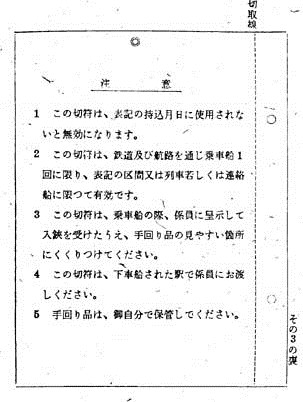 切取線
注意
1 この切符は、表記の持込月日に使用されな
いと無効になります。
2 この切符は、鉄道及び航路を通じ乗車船1
回に限り、表記の区間又は列車若しくは連絡
船に限つて有効です。
3 この切符は、乗車船の際、係員に呈示して
入鋏を受けたうえ、手回り品の見やすい箇所
にくくりつけてください。
4 この切符は、下車船された駅で係員にお渡
しください。
5 手回り品は、御自分で保管してください。
その3の裏